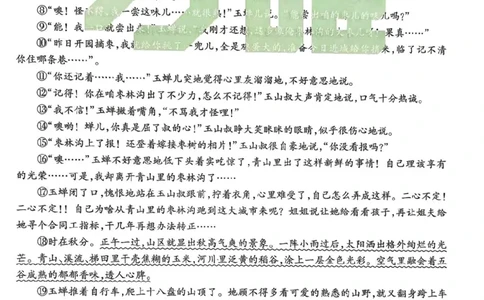 ⑧“噢！怪
尝这味儿
”玉蝉儿
⑨“能！我
⑩“昨日开园摘枣，我
临了记不清
你住哪条巷……”
⑪“你还记着……我……”玉蝉儿突地觉得心里灰溜溜地，不好意思地说。
⑫“记得！你在咱枣林沟出了不少力，怎么不记得！”玉山叔大声肯定地说，口气十分热诚。
⑬“我不信！”玉蝉撇着嘴角，“不骂我才怪哩！”
⑭“噢哟！蝉儿，你真是屈了叔的心！”玉山叔睁大笑眯眯的眼睛，似乎很伤心地说。
⑮“枣林沟上了报！还登着嫁接枣树的相片！”玉山叔很自豪地说，“你没看报吗？”
⑯“噢……”玉蝉不好意思地低下头着实吃惊了，青山里出了这样新鲜的事情！自己理该享有
的光荣……可是，我却离开青山里的枣林沟了……
⑰玉蝉闭了口，愧恨地站在玉山叔跟前，拧着衣角，心里难受了，自己怎么弄成这样。二心不定！
二心不定！！自己为啥从青山里的枣林沟跑到这大城市来呢？姐姐说让她给看看孩子，再让姐夫给
她寻个合同工指标，干几年再想办法转正……
⑱时在秋分。正午一过，山区就显出秋高气爽的景象。一阵小雨过后，太阳洒出格外绚烂的光
芒。青山、溪流、梯田里千壳焦糊的玉米，河川里泛黄的稻谷，涂上一层金色光彩。空气里融会着五
谷成熟的郁郁香味，透人心脾。
⑲玉蝉推着自行车，爬上十八盘的山顶了。她顾不得多看可爱的熟悉的山野，就又翻身跨上车